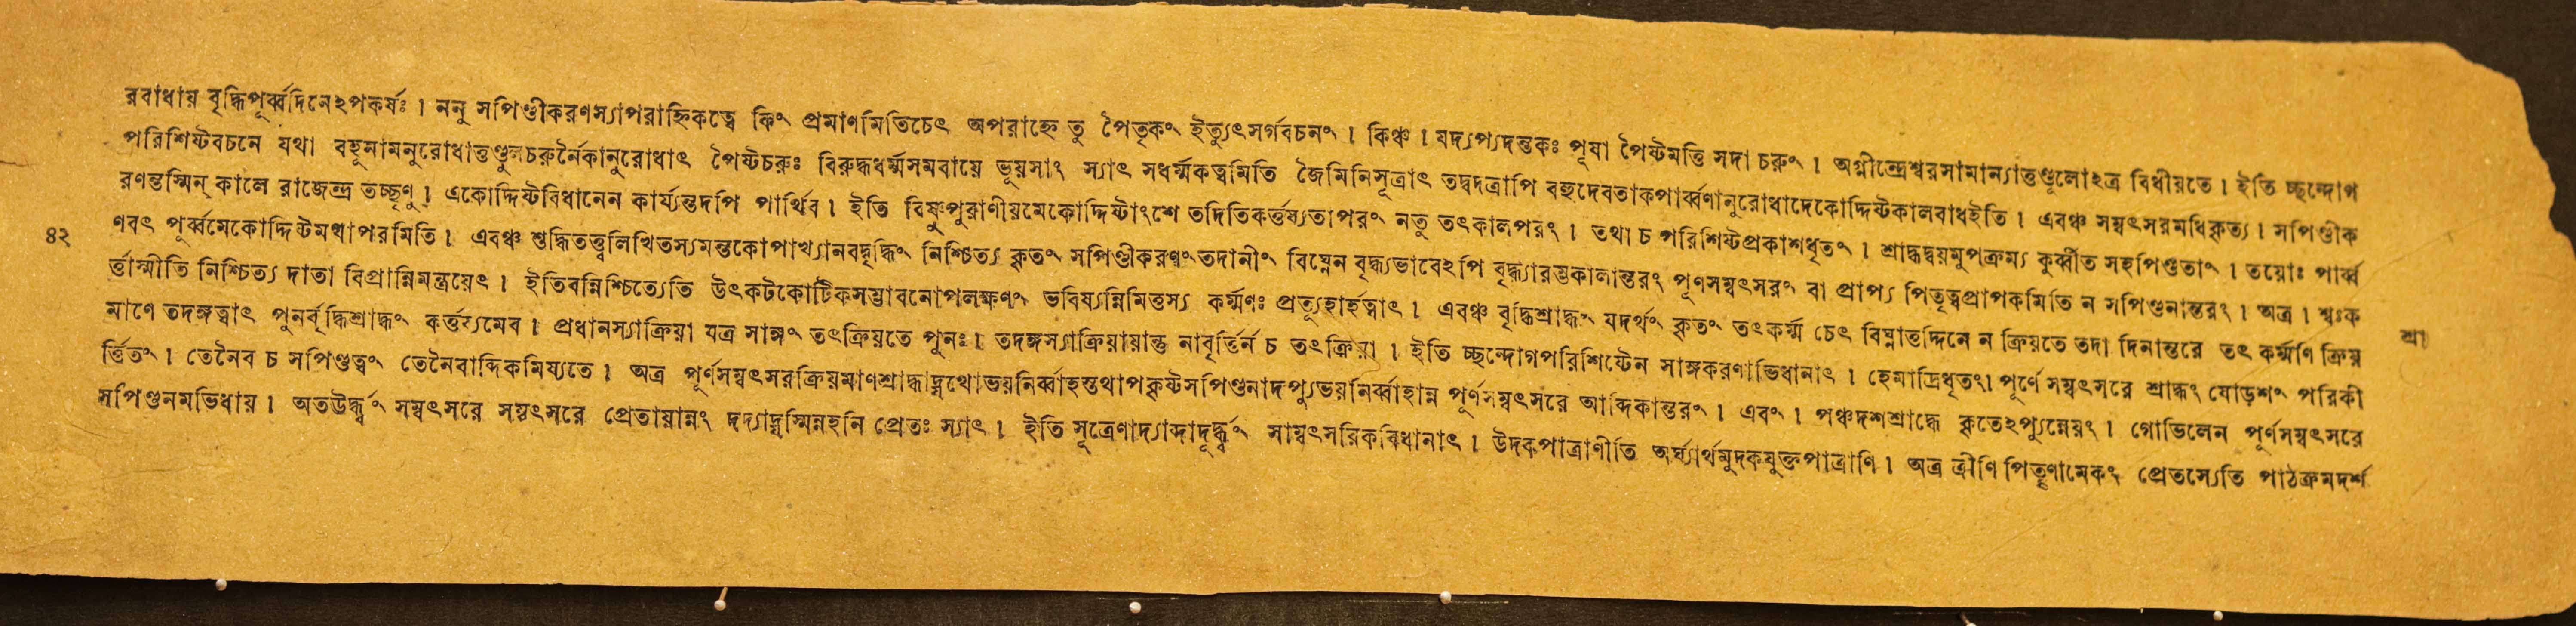 রবাধায় বৃদ্ধিপূর্ব্বদিনেঽপকর্ষঃ । ননু সপিণ্ডীকরণস্যাপরাহ্নিকত্বে কিং প্রমাণমিতিচেৎ অপরাহ্নে তু পৈতৃকং ইত্যুৎসর্গবচনং । কিঞ্চ । যদ্যপ্যদন্তকঃ পূষা পৈষ্টমত্তি সদা চরুং । অগ্নীন্দ্রেশ্বরসামান্যাত্তণ্ডুলোঽত্র বিধীয়তে । ইতি চ্ছন্দোগ
পরিশিষ্টবচনে যথা বহূনামনুরোধাত্তণ্ডুলচরুর্নৈকানুরোধাৎ পৈষ্টচরুঃ বিরুদ্ধধর্ম্মসমবায়ে ভূয়সাং স্যাৎ সধর্ম্মকত্বমিতি জৈমিনিসূত্রাৎ তদ্বদত্রাপি বহুদেবতাকপার্ব্বণানুরোধাদেকোদ্দিষ্টকালবাধইতি । এবঞ্চ সম্বৎসরমধিকৃত্য । সপিণ্ডীক
রণন্তস্মিন্ কালে রাজেন্দ্র তচ্ছৃণু । একোদ্দিষ্টবিধানেন কার্য্যন্তদপি পার্থিব । ইতি বিষ্ণুপুরাণীয়মেকোদ্দিষ্টাংশে তদিতিকর্ত্তব্যতাপরং নতু তৎকালপরং । তথা চ পরিশিষ্টপ্রকাশধৃতং । শ্রাদ্ধদ্বয়মুপক্রম্য কুর্ব্বীত সহপিণ্ডতাং । তয়োঃ পার্ব্ব
৪২ ণবৎ পূর্ব্বমেকোদ্দিষ্টমথাপরমিতি । এবঞ্চ শুদ্ধিতত্ত্বলিখিতস্যমন্তকোপাখ্যানবদ্বৃদ্ধিং নিশ্চিত্য কৃতং সপিণ্ডীকরণং তদানীং বিঘ্নেন বৃদ্ধ্যভাবেঽপি বৃদ্ধ্যারম্ভকালান্তরং পূর্ণসম্বৎসরং বা প্রাপ্য পিতৃত্বপ্রাপকমিতি ন সপিণ্ডনান্তরং । অত্র । শ্বঃক
র্ত্তাস্মীতি নিশ্চিত্য দাতা বিপ্রান্নিমন্ত্রয়েৎ । ইতিবন্নিশ্চিত্যেতি উৎকটকোটিকসম্ভাবনোপলক্ষণং ভবিষ্যন্নিমিত্তস্য কর্ম্মণঃ প্রত্যূহার্হত্বাৎ । এবঞ্চ বৃদ্ধিশ্রাদ্ধং যদর্থং কৃতং তৎকর্ম্ম চেৎ বিঘ্নাত্তদ্দিনে ন ক্রিয়তে তদা দিনান্তরে তৎ কর্ম্মণি ক্রিয় শ্রা
মাণে তদঙ্গত্বাৎ পুনর্বৃদ্ধিশ্রাদ্ধং কর্ত্তব্যমেব । প্রধানস্যাক্রিয়া যত্র সাঙ্গং তৎক্রিয়তে পুনঃ । তদঙ্গস্যাক্রিয়ায়ান্তু নাবৃর্ত্তির্ন চ তৎক্রিয়া । ইতি চ্ছন্দোগপরিশিষ্টেন সাঙ্গকরণাভিধানাৎ । হেমাদ্রিধৃতং। পূর্ণে সম্বৎসরে শ্রাদ্ধং ষোড়শং পরিকী
র্ত্তিতং । তেনৈব চ সপিণ্ডত্বং তেনৈবাব্দিকমিষ্যতে । অত্র পূর্ণসম্বৎসরক্রিয়মাণশ্রাদ্ধাদ্যথোভয়নির্ব্বাহস্তথাপকৃষ্টসপিণ্ডনাদপ্যুভয়নির্ব্বাহান্ন পূর্ণসম্বৎসরে আব্দিকান্তরং । এবং । পঞ্চদশশ্রাদ্ধে কৃতেঽপ্যুন্নেয়ং । গোভিলেন পূর্ণসম্বৎসরে
সপিণ্ডনমভিধায় । অতঊর্দ্ধ্বং সম্বৎসরে সম্বৎসরে প্রেতায়ান্নং দদ্যাদ্যস্মিন্নহনি প্রেতঃ স্যাৎ । ইতি সূত্রেণাদ্যাব্দাদূর্দ্ধ্বং সাম্বৎসরিকবিধানাৎ । উদকপাত্রাণীতি অর্ঘ্যার্থমুদকযুক্তপাত্রাণি । অত্র ত্রীণি পিতৄণামেকং প্রেতস্যেতি পাঠক্রমদর্শ